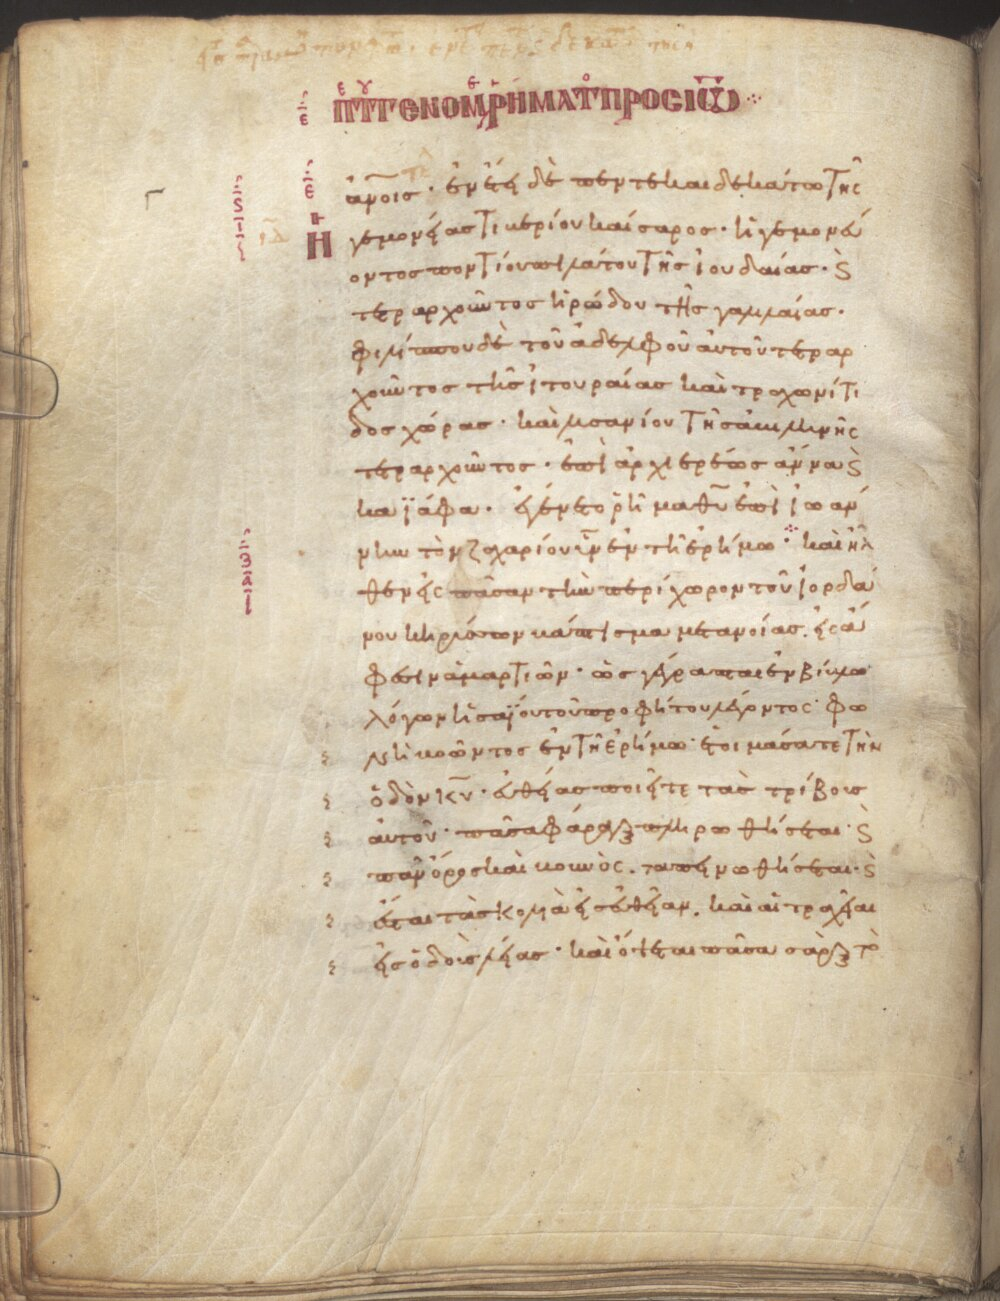 ἀνοις · ἐν ἔτει δὲ πεντεκαιδεκάτω τῆς
ἡγεμονείας τιβερίου καίσαρος · ἡγεμονεύ
οντος ποντίου πιλάτου τῆς ἰουδαίας · ϛ
τετραρχοῦντος ἡρώδου τῆς γαλιλαίας ·
φιλίππου δὲ τοῦ ἀδελφοῦ αὐτοῦ τετραρ
χοῦντος τῆς ἰτουραίας καὶ τραχωνίτι
δος χώρας · καὶ λυσανίου τῆς ἀβιλινῆς
τετραρχοῦντος · ἐπὶ ἀρχιερέως ἄννα ϛ
καϊάφα · ἐγένετο ῥῆμα θῦ ἐπὶ ἰωάν
νην τὸν ζαχαρίου υἱν ἐν τῆ ἐρήμω · καὶ ἦλ
θεν εἰς πᾶσαν τὴν περίχωρον τοῦ ἰορδά
νου κηρύσσων βάπτισμα μετανοίας · εἰς ἄ
φεσιν ἁμαρτιῶν · ὡς γέγραπται ἐν βίβλω
λόγων ἡσαΐου τοῦ προφήτου λέγοντος · φω
νὴ βοῶντος ἐν τῆ ἐρήμω · ἑτοιμάσατε τὴν
ὁδὸν κῦ · εὐθείας ποιεῖτε τὰς τρίβους
αὐτοῦ · πᾶσα φάραγξ πληρωθήσεται · ϛ
πᾶν ὄρος καὶ βουνὸς · ταπεινωθήσεται · ϛ
ἔσται τὰ σκολιὰ εἰς εὐθεῖαν · καὶ αἱ τραχεῖαι
εἰς ὁδοὺς λείας · καὶ ὄψεται πᾶσα σὰρξ τὸ